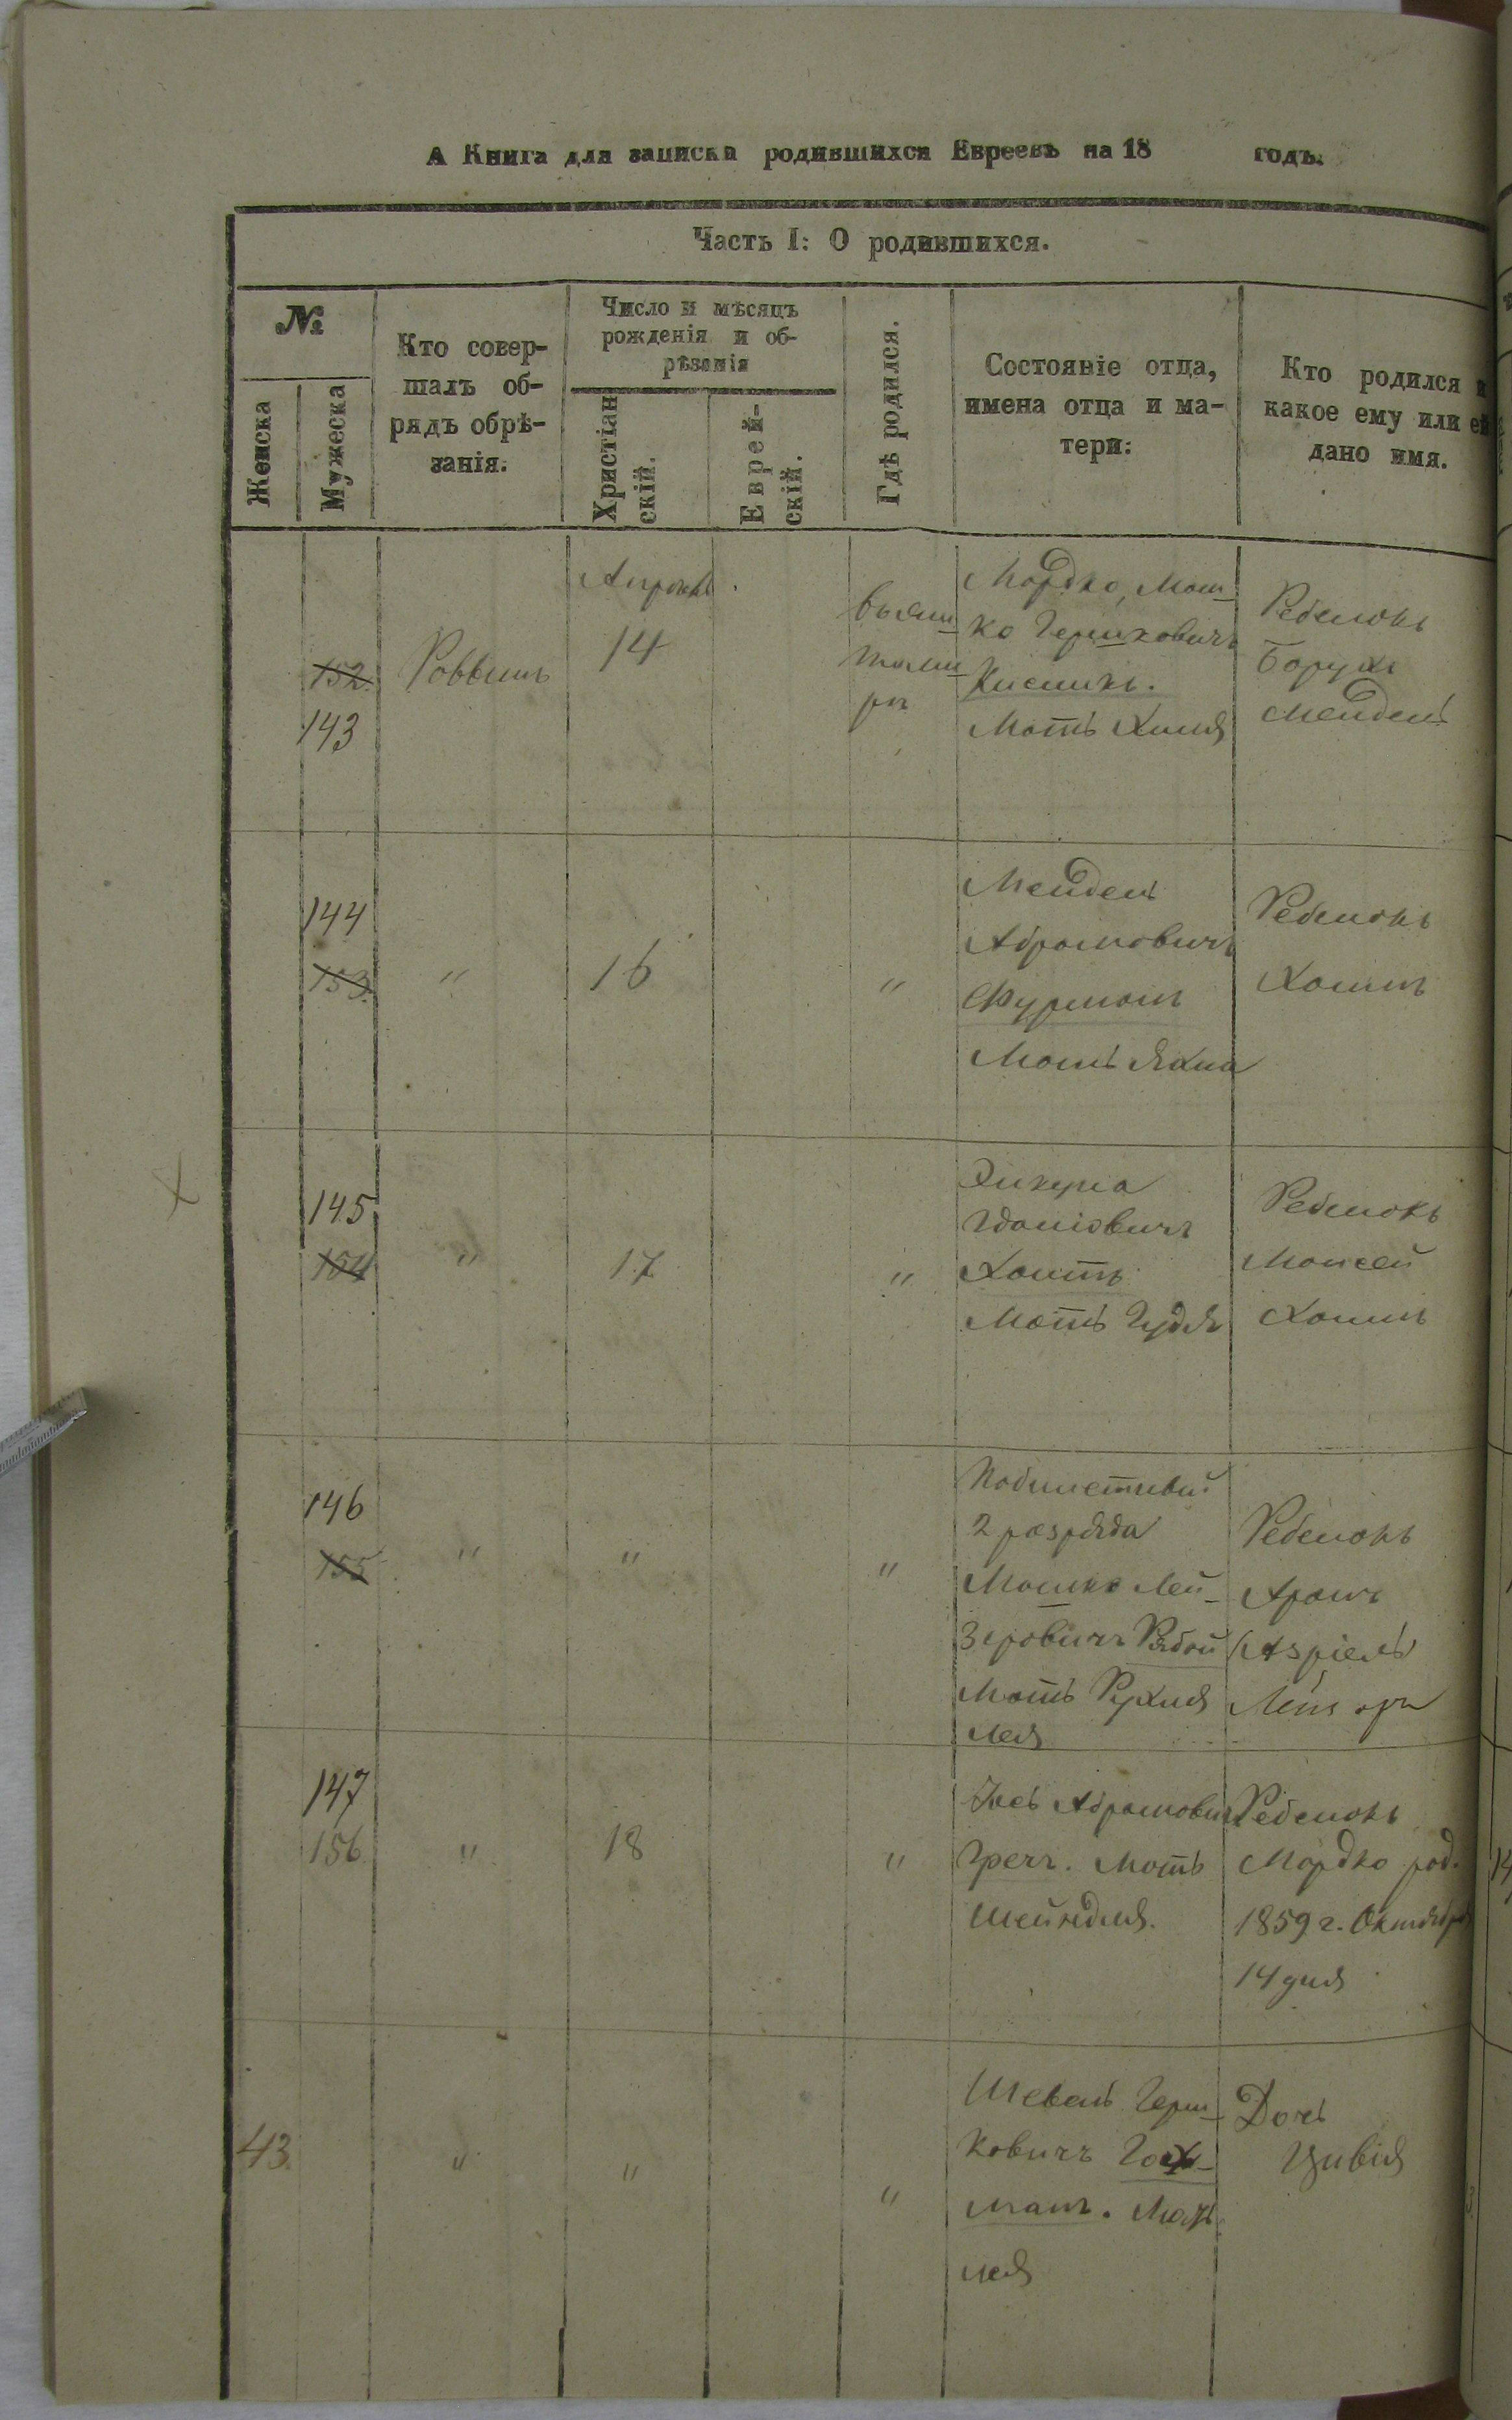 А Книга для записки родившихся Евреевъ на 18 годъ.
Часть I: О родившихся.
№
Женска
Мужеска
Кто совер-
шалъ об-
рядъ обрѣ-
занія.
Число и мѣсяцъ
рожденія и об-
рѣзанія
Христіан
скій.
Еврей-
скій.
Гдѣ родился.
Состояніе отца,
имена отца и ма-
тери:
Кто родился и
какое ему или ей
дано имя.
152.
143
Раввинъ
Апрель
14
Мордко, Мош-
ко Гершковичъ
Мать Хиня
Ребенокъ
Борухъ
Мендель
144
153.
"
16
"
Мендель
Абрамовичъ
Фурманъ
Мать Яхна
Ребенокъ
Хаимъ
145
154
"
17
"
Хаитъ
Мать Гудя
Ребенокъ
Моисей
Хаимъ
146
155
"
"
"
2 разряда
Мошко Лей-
зеровичъ Рябой
Мать Рухля
Лея
Ребенокъ
Аронъ
Азріель
147
156
"
18
"
Іось Абрамовичъ
Гречъ. Мать
Шейндля.
Ребенокъ
Мордко род.
1859 г. Октября
14 дня
43.
"
"
"
Шевель Герш-
ковичъ Гох-
манъ. Мать
Лея
Дочь
Цивія